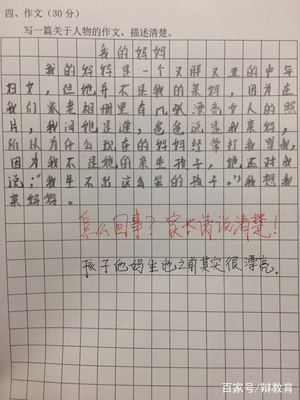 四、作文(30分)
写一篇关于人物的作文,描述清楚。
我的妈妈
我的妈妈是一个又胖又丑的中年
妇女,但她并不是我的亲妈,因为在
我们家老相册里有几张漂亮女人的照
片,我问她是谁,爸爸说是我亲妈,
所以为什么现在的妈妈经常打我骂我,
因为我不是她的亲生孩子,她还对我
说:“我生不出这么笨的孩子。”我想我
亲妈妈。
怎么回事?家长请说清楚!
孩子他妈生他之前其实很漂亮.
百家号/辩教育